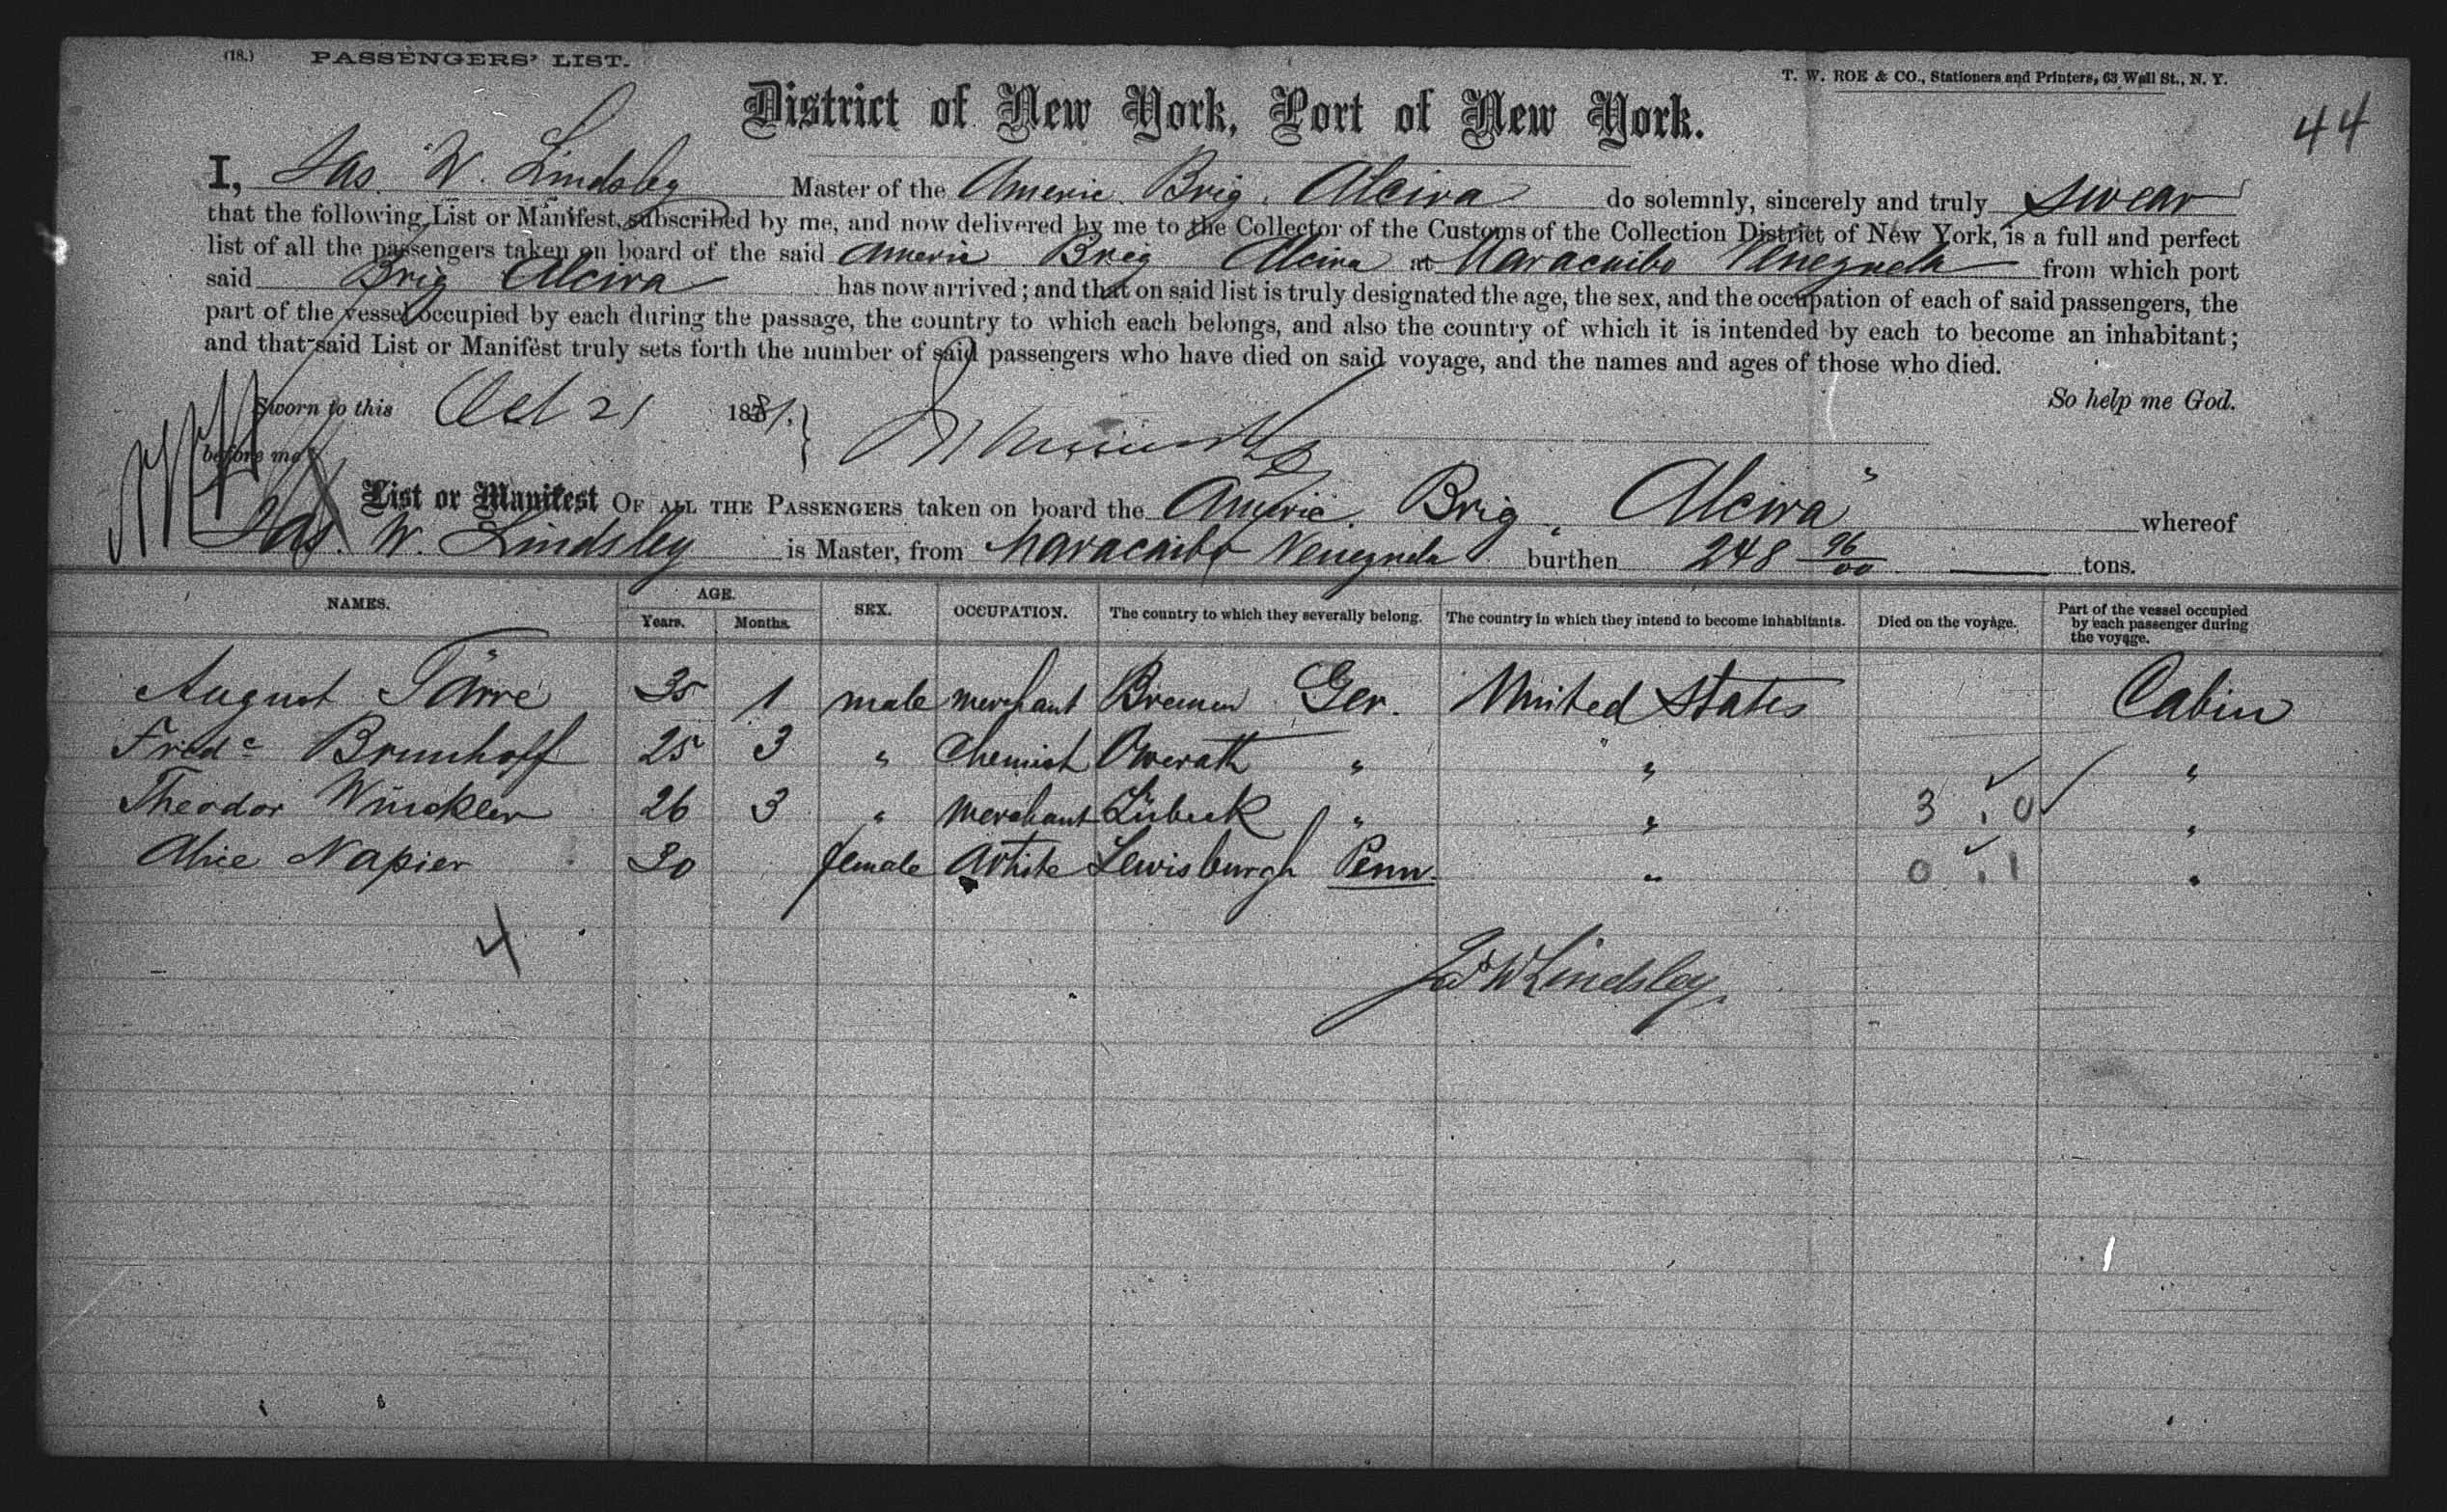 (18.) PASSENGERS' LIST.
T. W. ROE & CO., Stationers and Printers, 63 Wall St., N. Y.
District of New York, Port of New York.
44
I, Jas. W. Lindsley Master of the Americ. Brig. Alcira do solemnly, sincerely and truly swear
that the following List or Manifest, subscribed by me, and now delivered by me to the Collector of the Customs of the Collection District of New York, is a full and perfect
list of all the passengers taken on board of the said Americ Brig Alcira at Maracaibo Venezuela from which port
said Brig Alcira has now arrived; and that on said list is truly designated the age, the sex, and the occupation of each of said passengers, the
part of the vessel occupied by each during the passage, the country to which each belongs, and also the country of which it is intended by each to become an inhabitant;
and that said List or Manifest truly sets forth the number of said passengers who have died on said voyage, and the names and ages of those who died.
So help me God.
Sworn to this Oct 21 1881.
before me
List or Manifest OF ALL THE PASSENGERS taken on board the Americ. Brig "Alcira" whereof
Jas. W. Lindsley is Master, from Maracaibo Venezuela burthen 248 96/00 tons.
NAMES. AGE. Years. Months. SEX. OCCUPATION. The country to which they severally belong. The country in which they intend to become inhabitants. Died on the voyage. Part of the vessel occupied by each passenger during the voyage.
August Tärre 35 1 male merchant Bremen Ger. United States Cabin
Fredc Brunhoff 25 3 " Chemist Overath " " "
Theodor Winckler 26 3 " Merchant Lübeck " " 3 . 0 "
Alice Napier 30 female Artiste Lewisburgh Penn " 0 . 1 "
4
Jas W Lindsley.